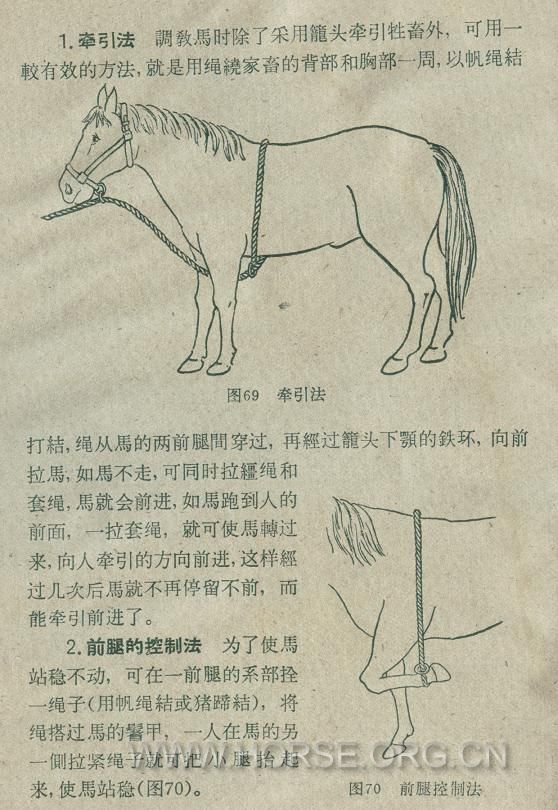 1.牵引法　調敎馬时除了采用籠头牵引牲畜外，可用一
較有效的方法，就是用绳繞家畜的背部和胸部一周，以帆绳結
图69　牵引法
打結，绳从馬的两前腿間穿过，再經过籠头下顎的鉄环，向前
拉馬，如馬不走，可同时拉繮绳和
套绳，馬就会前进，如馬跑到人的
前面，一拉套绳，就可使馬轉过
来，向人牵引的方向前进，这样經
过几次后馬就不再停留不前，而
能牵引前进了。
2.前腿的控制法　为了使馬
站稳不动，可在一前腿的系部拴
一绳子（用帆绳結或猪蹄結），将
绳搭过馬的鬐甲，一人在馬的另
一側拉紧绳子就可把小腿抬起
来，使馬站稳（图70）。
图70　前腿控制法
WWW.HORSE.ORG.CN